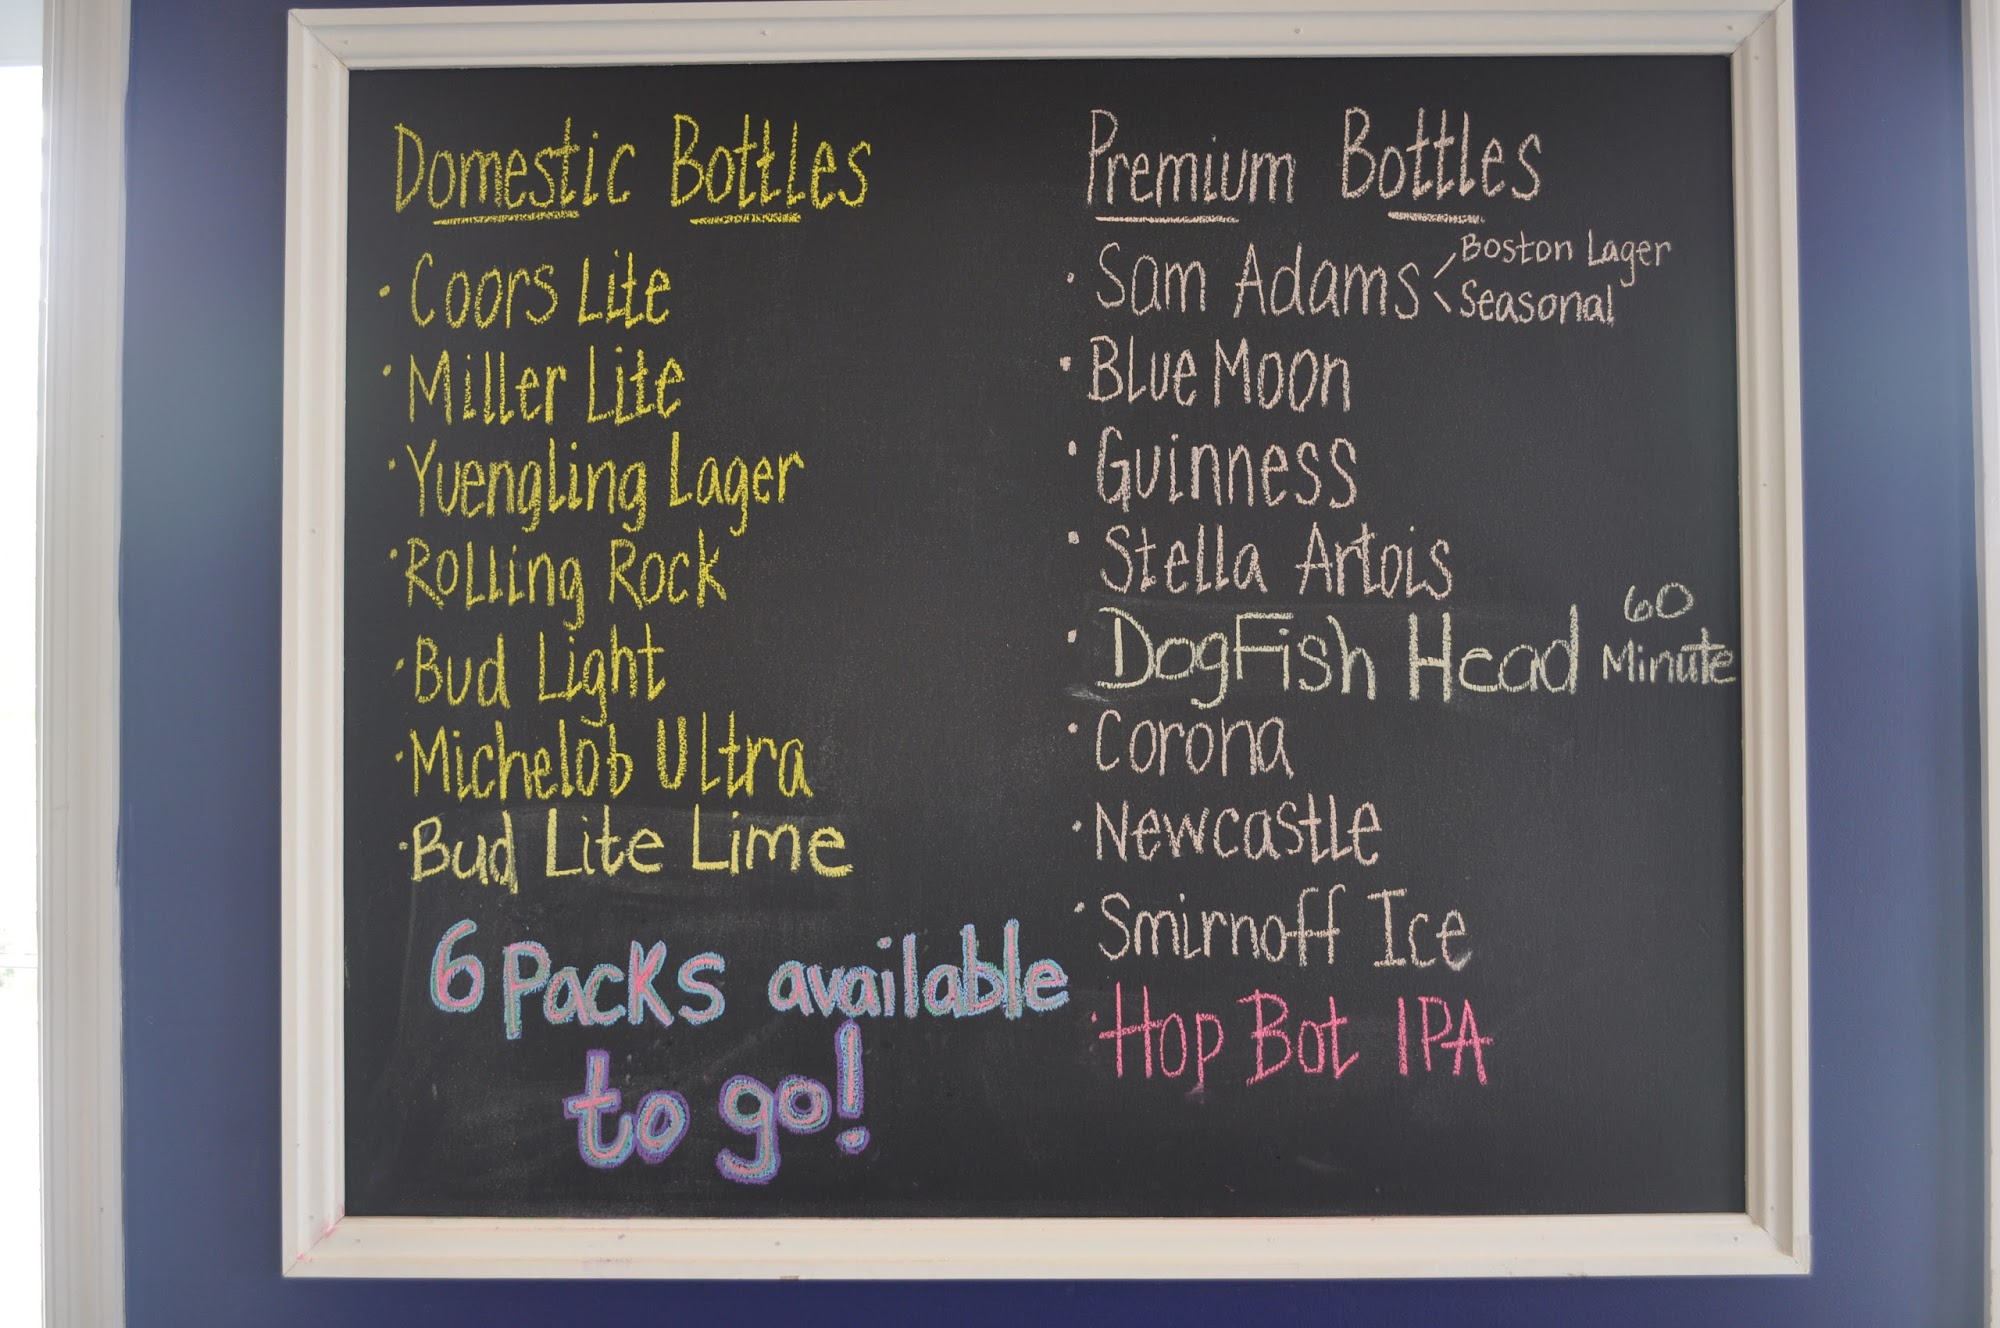 Domestic Bottles
· Coors Lite
· Miller Lite
· Yuengling Lager
· Rolling Rock
· Bud Light
· Michelob Ultra
· Bud Lite Lime
6 Packs available
to go!
Premium Bottles
· Sam Adams < Boston Lager
Seasonal
· Blue Moon
· Guinness
· Stella Artois
· DogFish Head 60 Minute
· Corona
· Newcastle
· Smirnoff Ice
· Hop Bot IPA